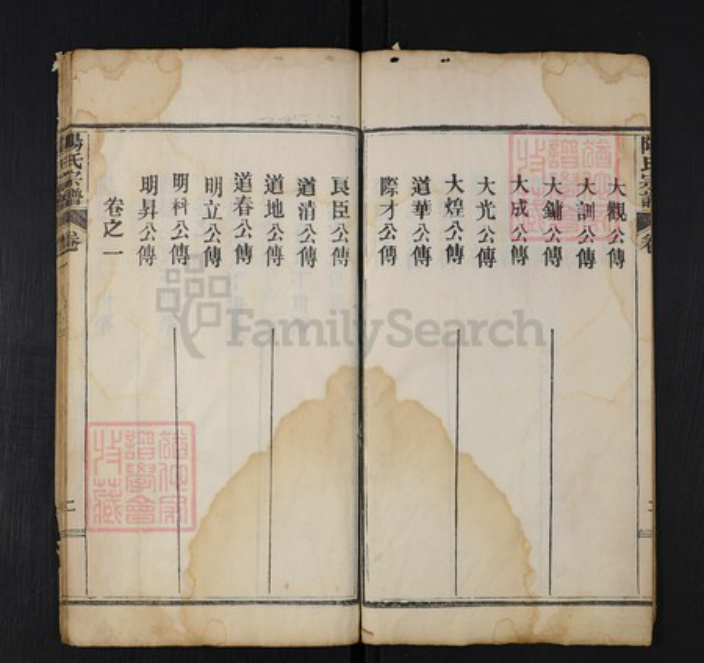 大觀公傳
大訓公傳
大鏞公傳
大成公傳
大光公傳
大煌公傳
道華公傳
際才公傳
良臣公傳
道清公傳
道地公傳
道春公傳
明立公傳
明科公傳
明昇公傳
卷之一
陽氏宗譜
卷一
二
FamilySearch